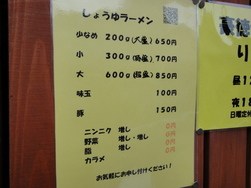 しょうゆラーメン
少なめ 200g 650円
小 300g 700円
大 600g 850円
味玉 100円
豚 150円
ニンニク 増し 0円
野菜 増し・増し 0円
脂 増し 0円
カラメ 0円
お気軽にお申し付けください!
り
昼1
夜18
日曜定休